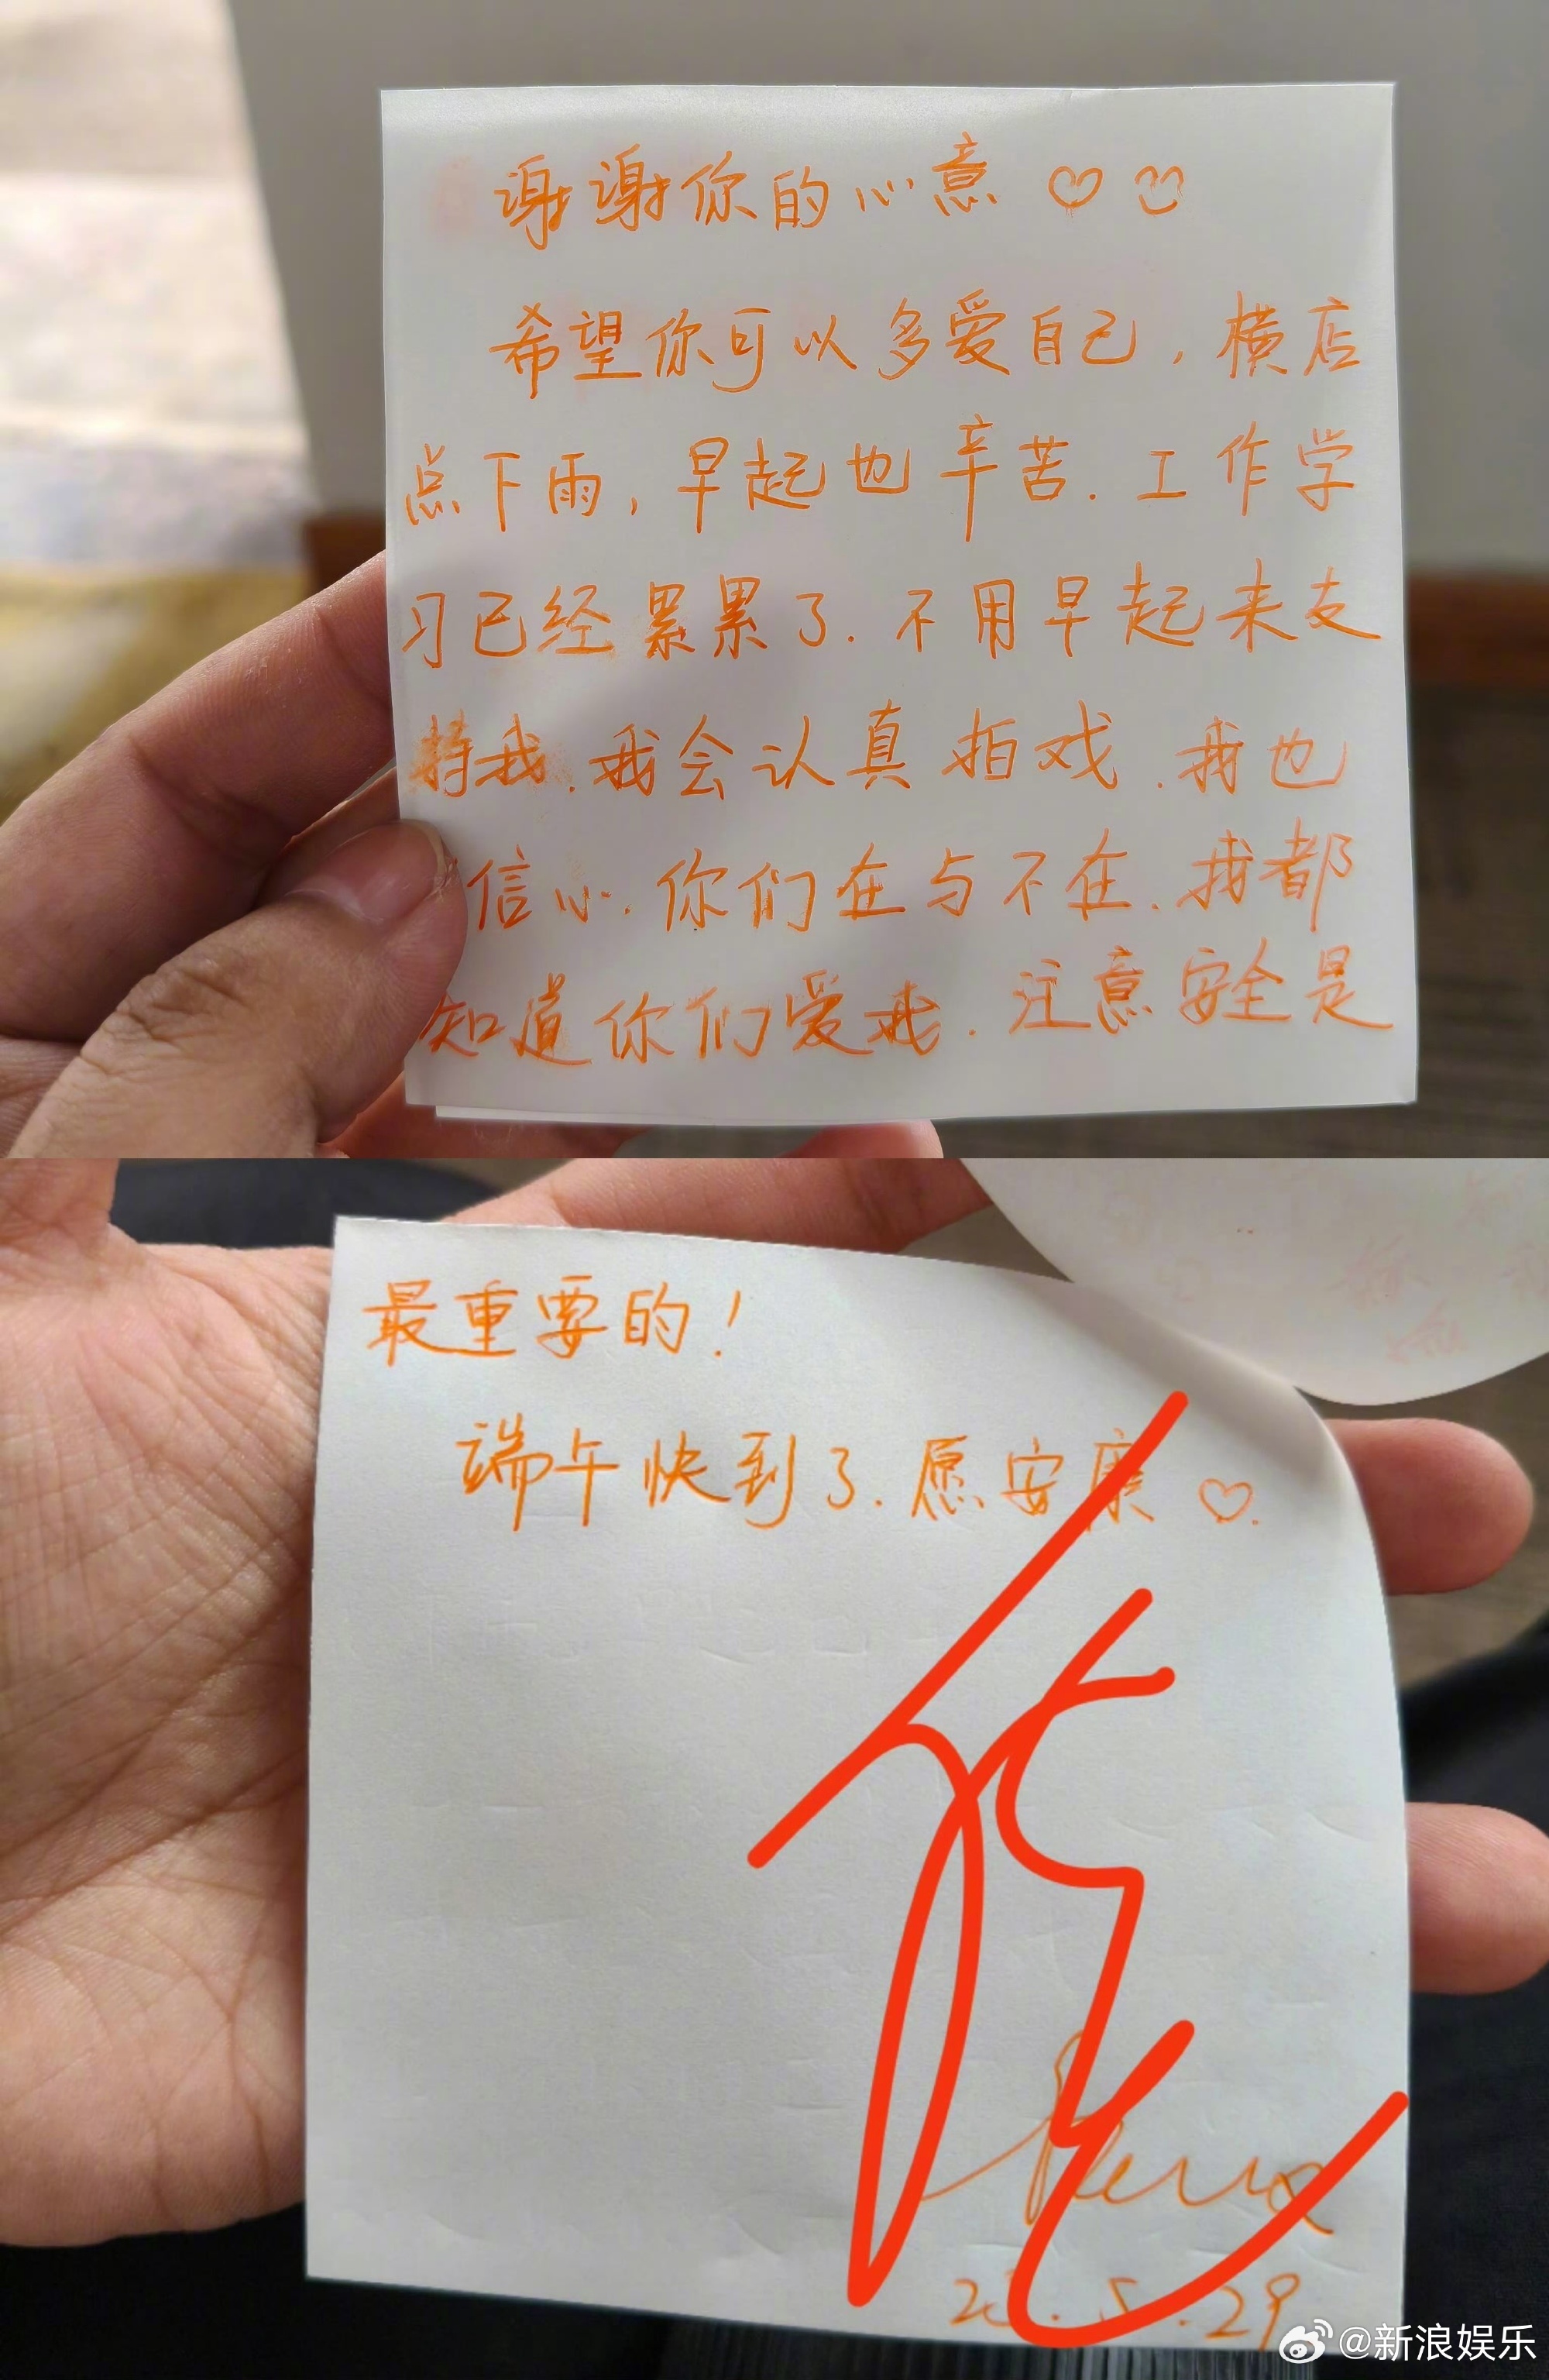 谢谢你的心意
希望你可以多爱自己，横店
点下雨，早起也辛苦.工作学
习已经累累了.不用早起来支
持我.我会认真拍戏.我也
信心.你们在与不在.我都
知道你们爱我.注意安全是
最重要的！
端午快到了.愿安康
.5.29
@新浪娱乐